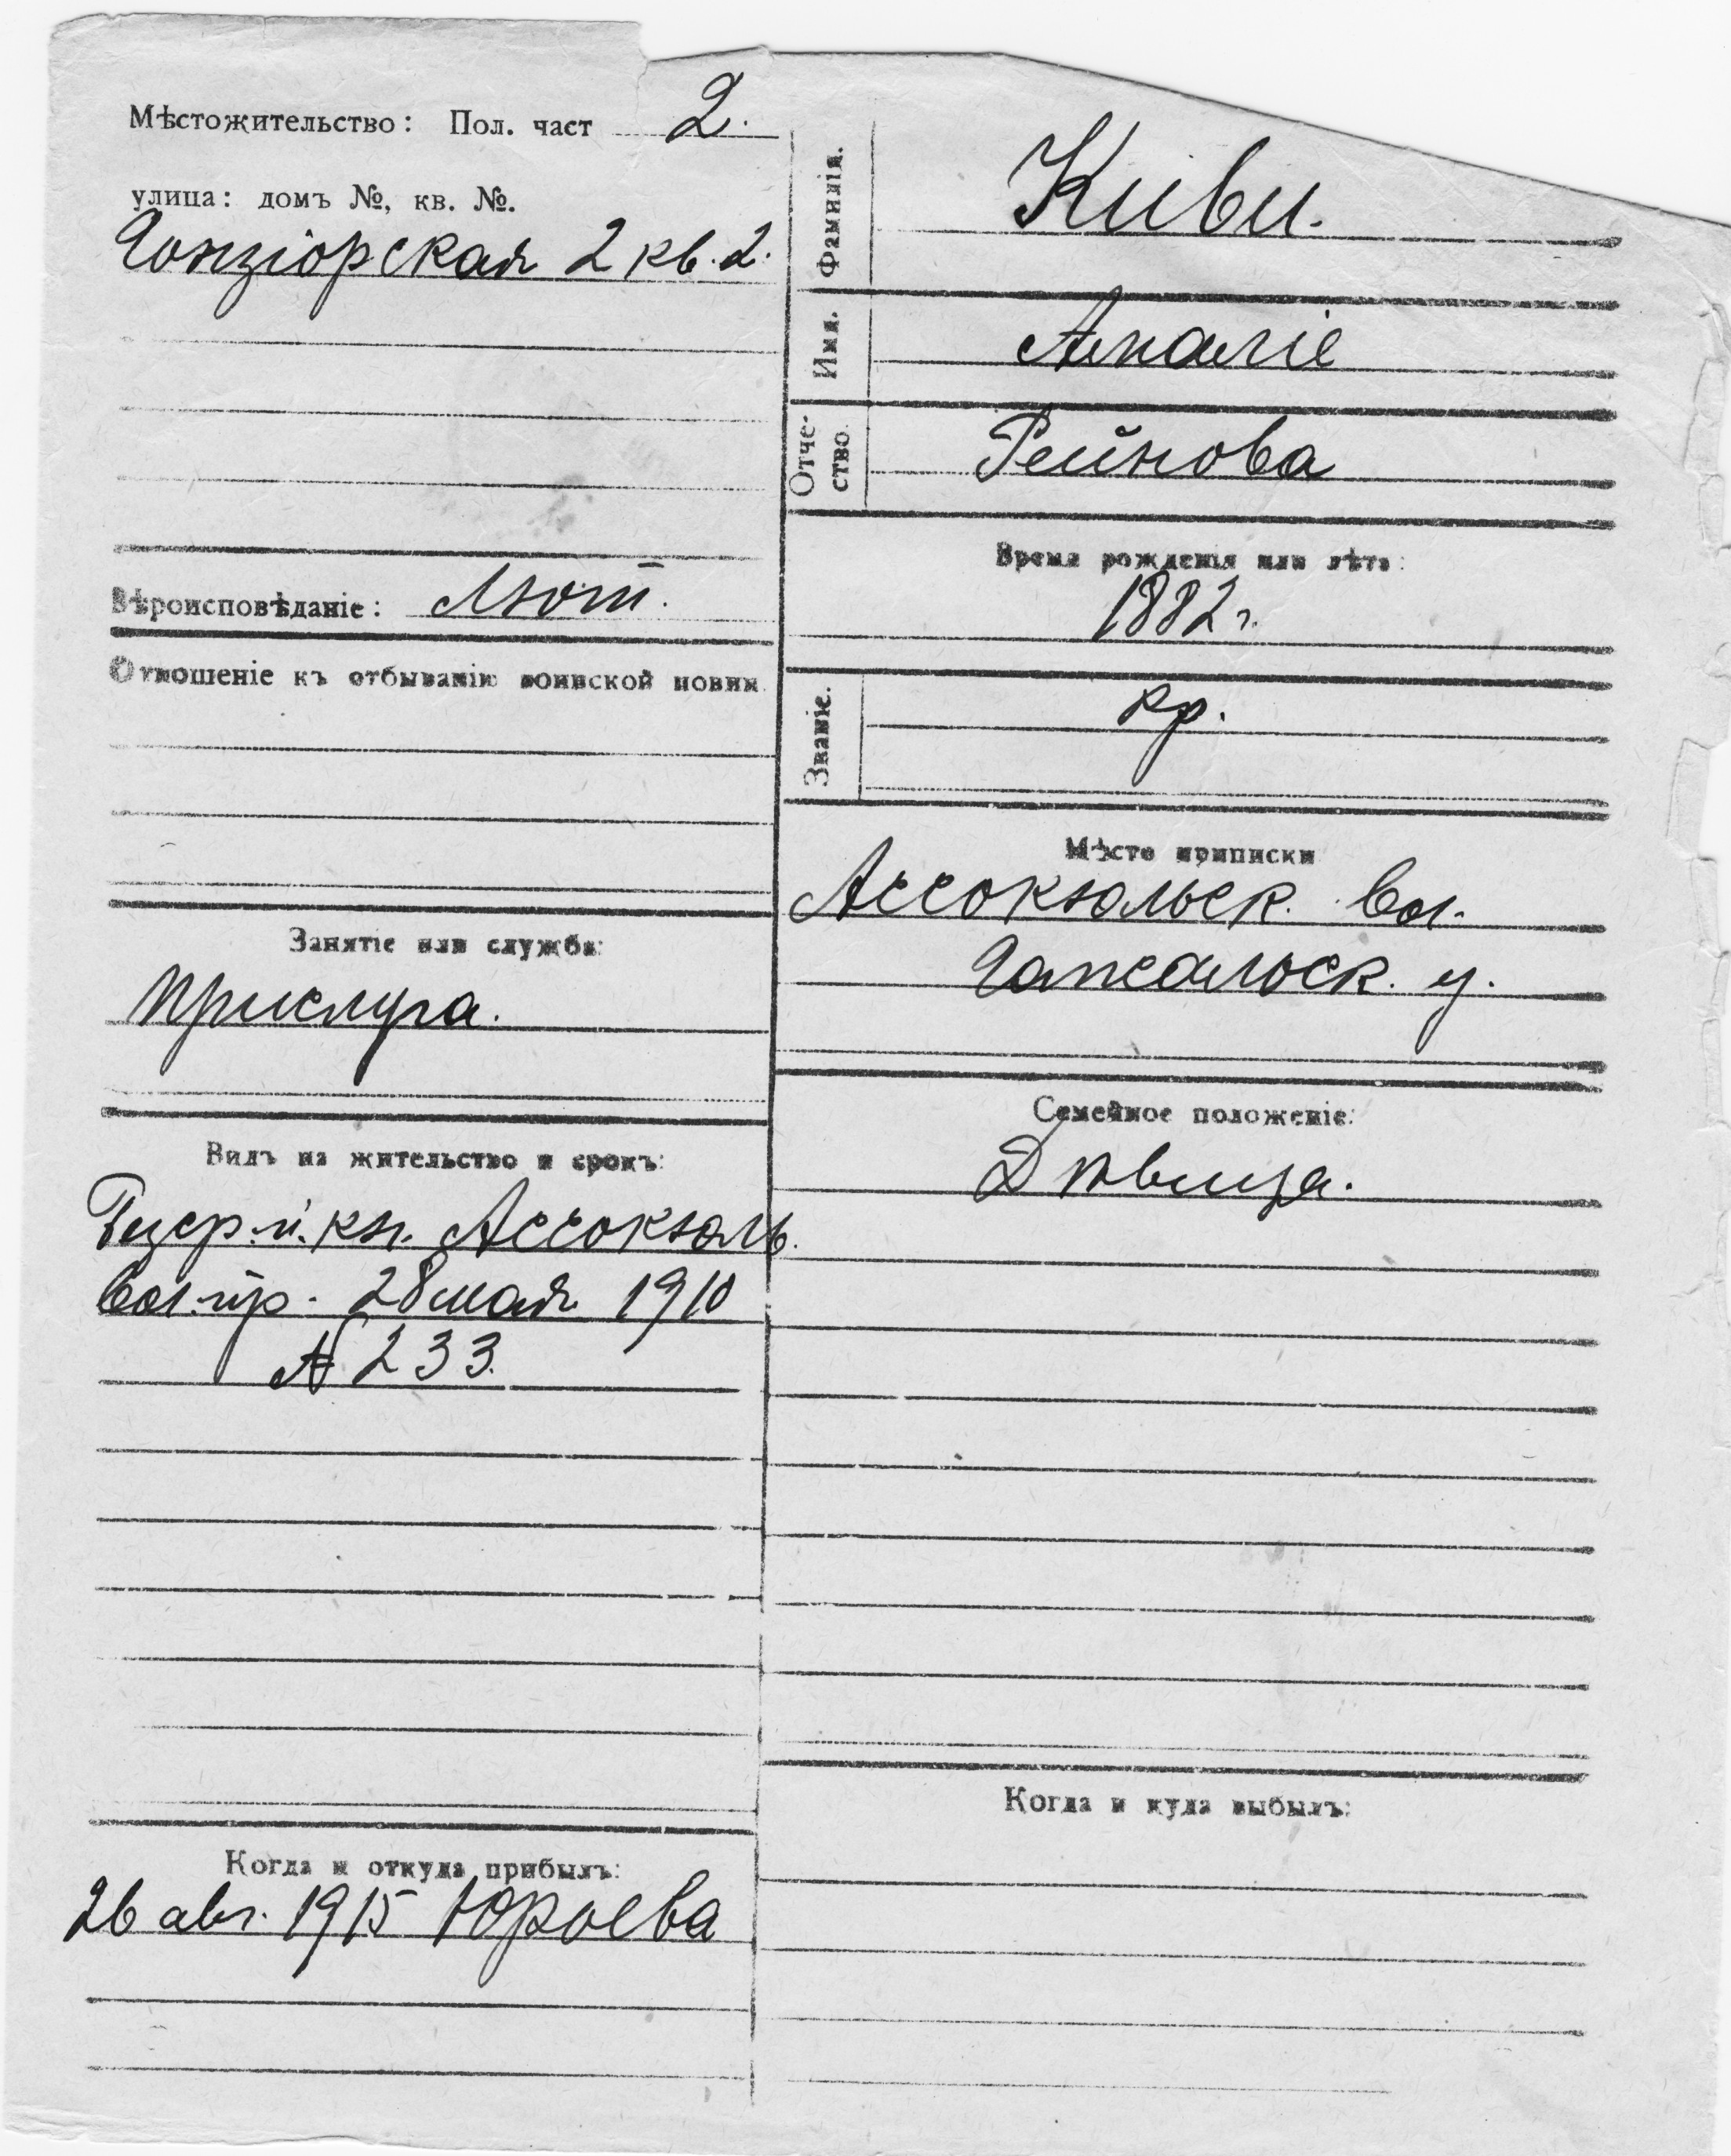 Мѣстожительство: Пол. част 2.
улица: домъ №, кв. №.
Гонзіорская 2 кв. 2.
Вѣроисповѣданіе: Лют.
Отношеніе къ отбыванію воинской повин.
Занятіе или служба:
Прислуга.
Видъ на жительство и срокъ:
кн. Ассокюль.
вол. пр. 28 мая 1910
№ 233.
Когда и откуда прибылъ:
26 авг. 1915 Юрьева
Фамилія. Киви.
Имя. Амаліе
Отче-
ство. Рейнова
Время рожденія или лѣта:
1882 г.
Званіе. кр.
Мѣсто приписки
Ассокюльск. вол.
Гапсальск. у.
Семейное положеніе:
Дѣвица.
Когда и куда выбылъ: